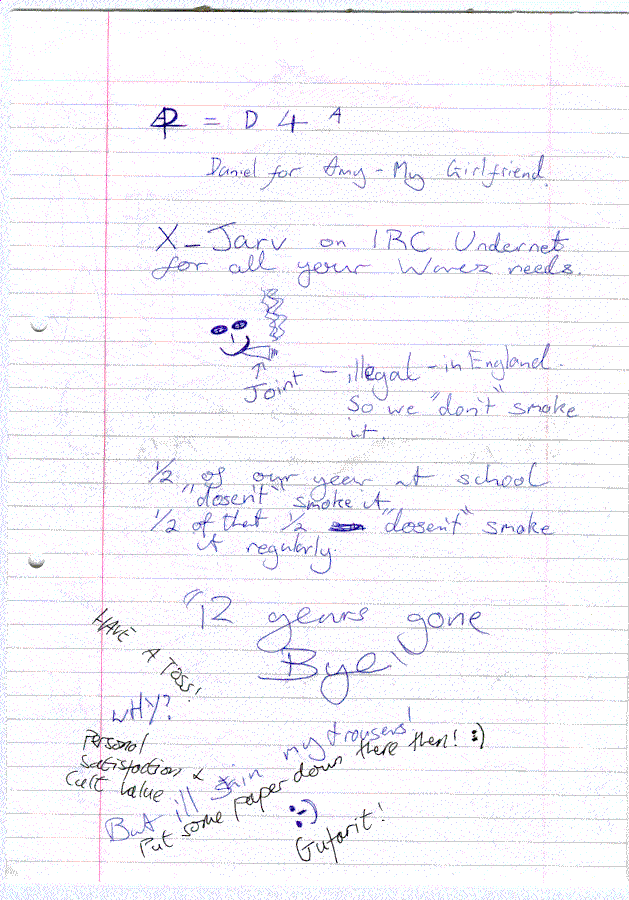 = D 4 A
Daniel for Amy - My Girlfriend.
X-Jarv on IRC Undernet
for all your Warez needs.
Joint - illegal - in England.
So we "don't" smoke
it.
1/2 of our year at school
"dosen't" smoke it
1/2 of that 1/2 "dosen't" smoke
it regularly.
"12 years gone
Bye"
HAVE A TOSS!
WHY?
Personal
Satisfaction &
Cult Value
But ill stain my trousers!
Put some paper down there then! :)
:-)